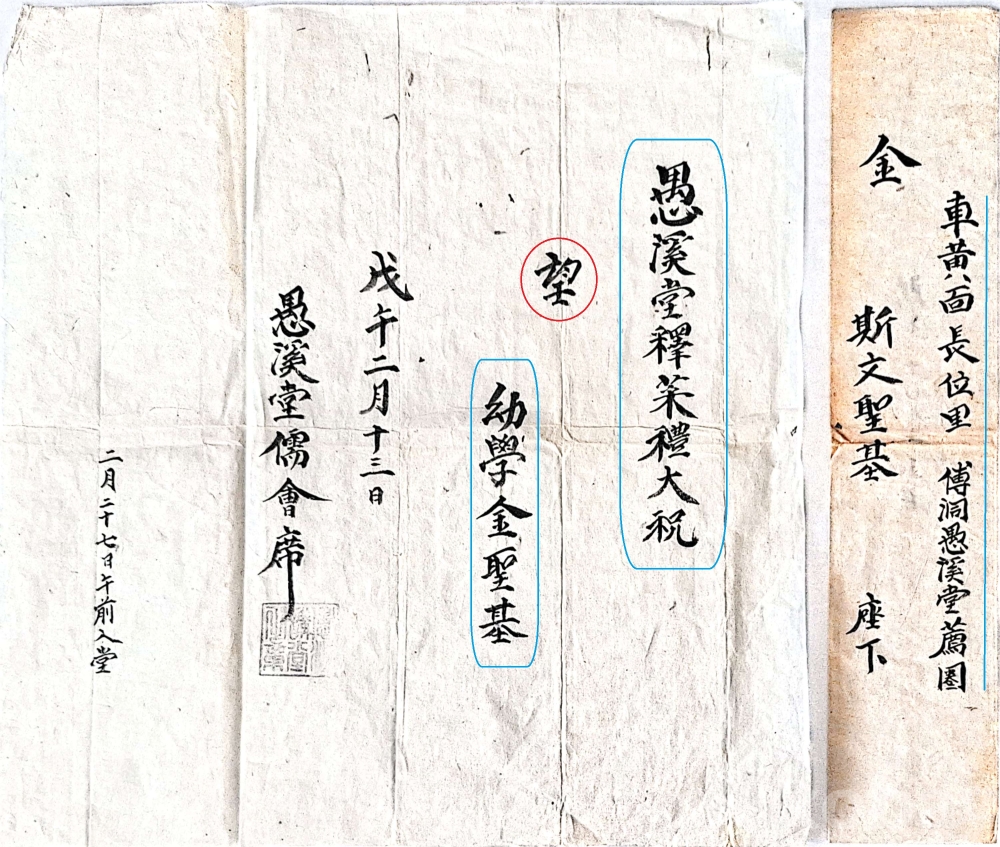 車黃面長位里 傅洞愚溪堂薦圈
金 斯文聖基 座下
愚溪堂釋菜禮大祝
望
幼學金聖基
戊午二月十三日
愚溪堂儒會席
二月二十七日午前入堂